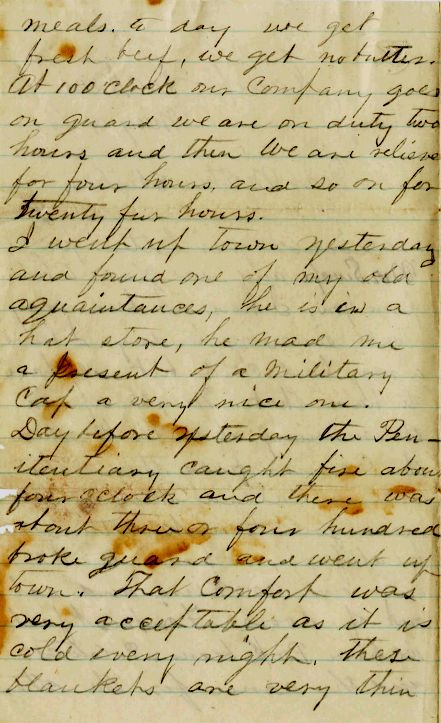 meals. to day we get
fresh beef, we get no butter.
At 10 O'clock our Company goes
on guard we are on duty two
hours and then we are relieve
for four hours, and so on for
twenty fur hours.
I went up town yesterday
and found one of my old
aquaintances, he is in a
hat store, he mad me
a present of a Military
Cap a very nice one.
Day before yesterday the Pen-
itentiary caught fire about
four oclock and there was
about three or four hundred
broke guard and went up
town. That Comfort was
very acceptable as it is
cold every night. these
blankets are very thin